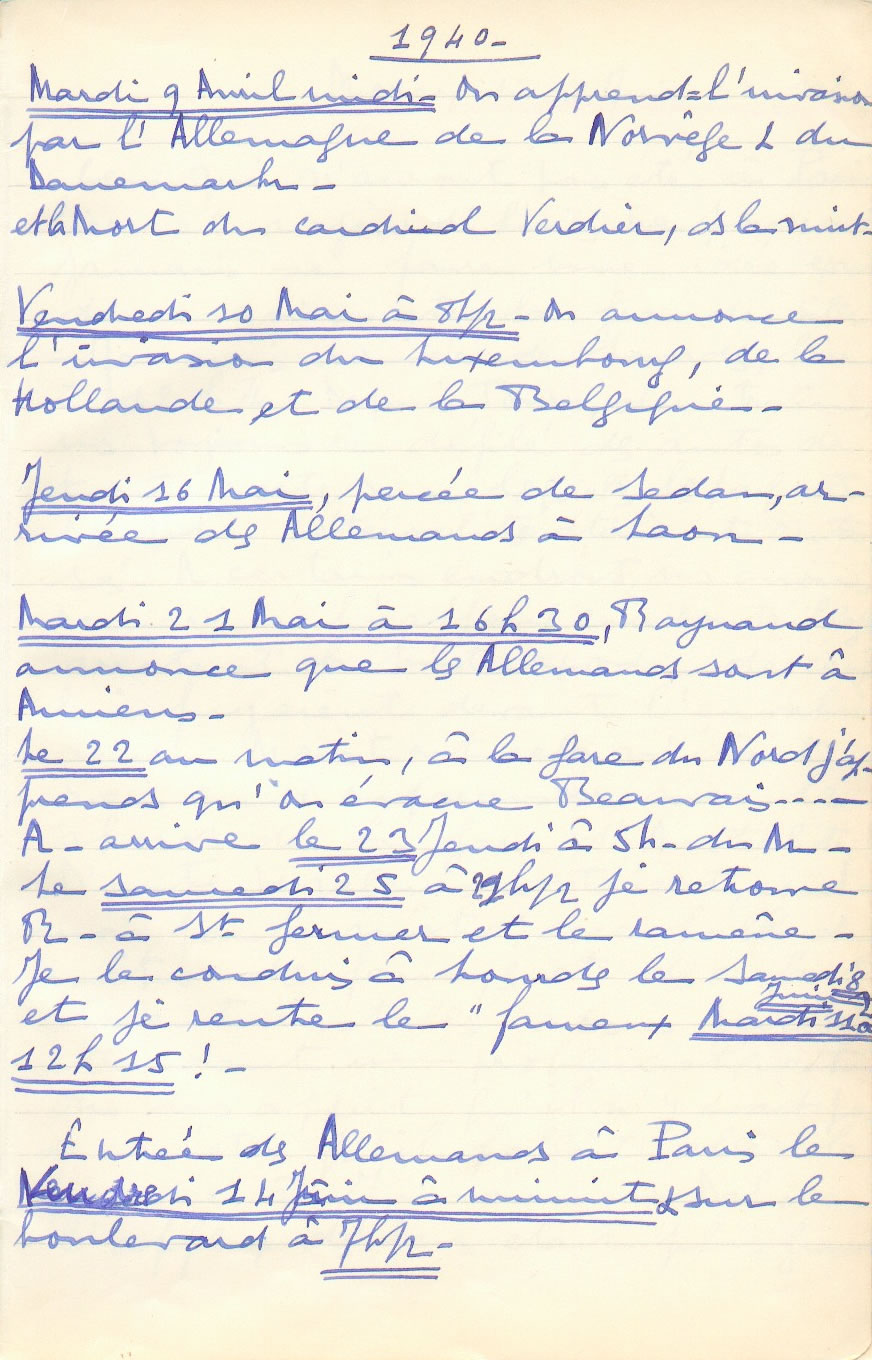 1940-
Mardi 9 Avril midi- On apprend l'invasion
par l'Allemagne de la Norvêge & du
Danemark -
et la Mort du cardinal Verdier, ds la nuit-
Vendredi 10 Mai à 8h½ - On annonce
l'invasion du Luxembourg, de la
Hollande et de la Belgique -
Jeudi 16 Mai, percée de Sedan, ar-
rivée ds Allemands à Laon -
Mardi 21 Mai à 16h30, Raynaud
annonce que ls Allemands sont à
Amiens -
Le 22 au matin, à la gare du Nord j'ap-
prends qu'on évacue Beauvais ----
A - arrive le 23 Jeudi à 5h - du M -
Le samedi 25 à h½ je retrouve
R - à St fermer et le ramêne -
Je le conduis à le Samedi 8
Juin
et je rentre le "fameux Mardi 11 à
12h 15 ! -
Entrée ds Allemands à Paris le
Vendredi 14 Juin à minuit & sur le
boulevard à 7h½ -